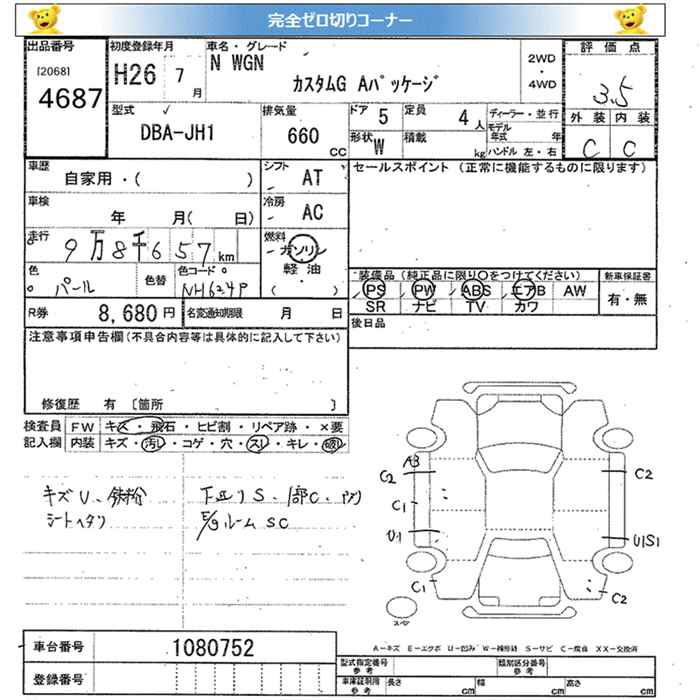 完全ゼロ切りコーナー
出品番号 初度登録年月 車名・グレード 評価点
[2068] 4687 H26 7月 N WGN カスタムG Aパッケージ 2WD・4WD 3.5
型式 排気量 ドア 5 定員 4人 ディーラー・並行 外装 内装
DBA-JH1 660 CC 形状 W 積載 kg モデル年式 年 ハンドル 左・右 C C
車歴 シフト セールスポイント (正常に機能するものに限ります)
自家用・( ) AT
車検 年 月( 日) 冷房 AC
走行 9万8千657km 燃料 ガソリン
軽油
( )
色 パール 色替 色コード NH624P
装備品(純正品に限り○をつけてください) 新車保証書
PS PW ABS エアB AW 有・無
SR ナビ TV カワ
R券 8,680円 名変通知期限 月 日 後日品
注意事項申告欄(不具合内容等は具体的に記入して下さい)
修復歴 有 [箇所 ]
検査員 FW キズ・飛石・ヒビ割・リペア跡・×要
記入欄 内装 キズ・汚れ・コゲ・穴・スレ・キレ・破れ
キズU、鉄粉 下廻りS、1部C
シートヘタリ E/gルームSC
A3
C2 C2
C1
U1 U1S1
C1 C2
スペア
車台番号 1080752
A-キズ E-エクボ U-凹み W-補修跡 S-サビ C-腐食 XX-交換済
登録番号
型式指定番号 参考 類別区分番号 参考
車庫証明用 参考 長さ cm 幅 cm 高さ cm